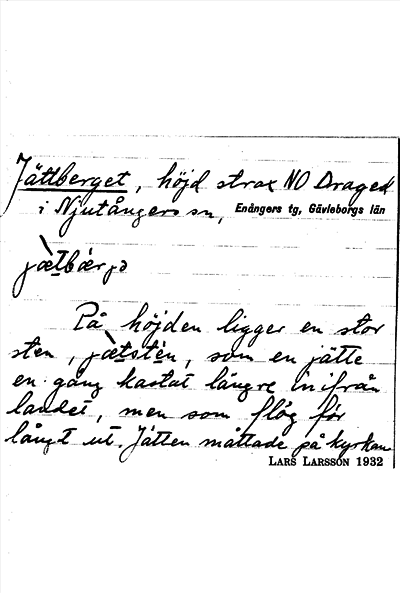 Jättberget, höjd strax NO Draged
i Njutångers sn, Enångers tg, Gävleborgs län
jætbærjə
På höjden ligger en stor
sten, jætstén, som en jätte
en gång kastat längre inifrån
landet, men som flög för
långt ut. Jätten måttade på kyrkan
LARS LARSSON 1932